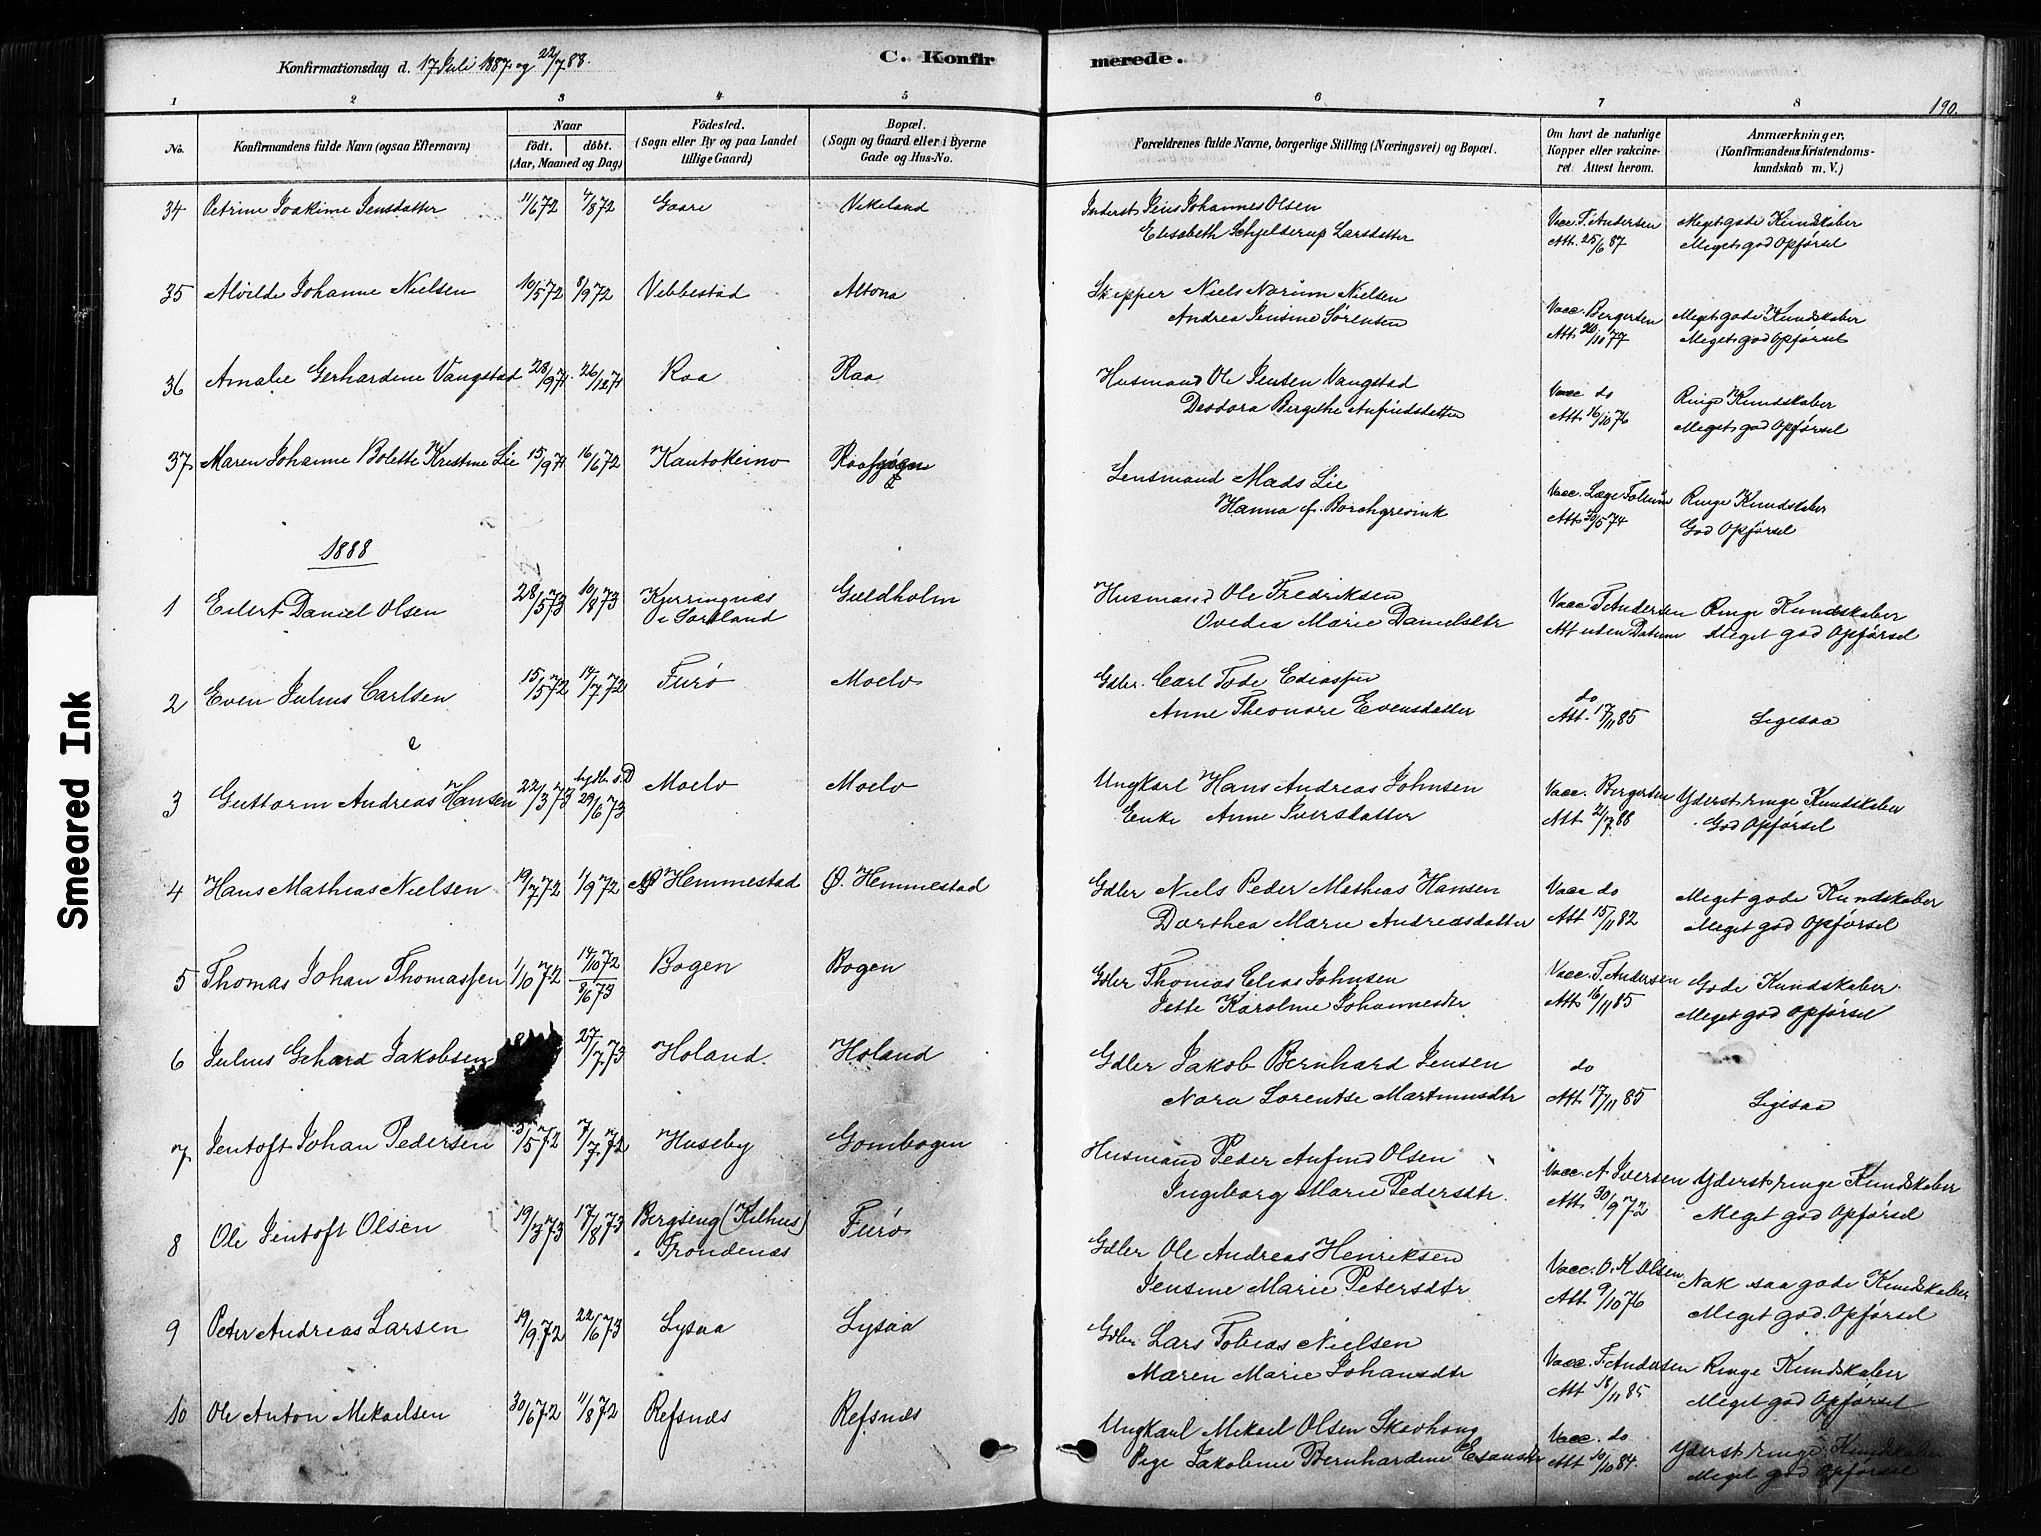 Konfirmationsdag d. 17 Juli 1887 og 22/7 88.
C. Konfirmerede.
190.
1 2 3 4 5 6 7 8
No.
Konfirmandens fulde Navn (ogsaa Efternavn)
Naar
födt. döbt.
(Aar, Maaned og Dag)
Födested.
(Sogn eller By og paa Landet
tillige Gaard)
Bopæl.
(Sogn og Gaard eller i Byerne
Gade og Hus-No.
Forældrenes fulde Navne, borgerlige Stilling (Næringsvei) og Bopæl.
Om havt de naturlige
Kopper eller vakcine-
ret. Attest herom.
Anmærkninger.
(Konfirmandens Kristendoms-
kundskab m. V.)
34 Petrine Joakime Jensdatter 11/6 72 4/8 72 Gaare Vikeland
Inderst Jens Johannes Olsen
Elisabeth Schjelderup Larsdatter
Vacc. F. Andersen
Att. 25/6 87
Meget gode Kundskaber
Meget god Opförsel
35 Alvilde Johanne Nielsen 10/5 72 8/9 72 Vebbestad Altona
Skipper Niels Norum Nielsen
Andrea Jensine Sørensen
Vacc. Bergersen
Att. 20/10 77
Meget gode Kundskaber
Meget god Opförsel
36 Amalie Gerhardine Vangstad 28/9 71. 26/12 71 Raa Raa
Husmand Ole Jensen Vangstad
Deodora Bergithe Anfindsdatter
Vacc do
Att. 16/10 76
Ringe Kundskaber
Meget god Opförsel
37 Maren Johanne Bolette Kristine Lie 15/9 71 16/6 72 Kautokeino
Lensmand Mads Lie
Hanna f. Borchgrevink
Vacc. Læge
Att. 30/5 74
Ringe Kundskaber
God Opförsel
1888
1 Eilert Daniel Olsen 28/5 73 10/8 73 Kjerringnæs Guldholm
i Sortland
Husmand Ole Fredriksen
Ovedia Marie Danielsdtr
Vacc F Andersen
Att uden Datum
Ringe Kundskaber
Meget god Opförsel
2 Even Julius Carlsen 15/5 72 14/7 72 Furö Moelv
Gdbr. Carl Tode Ediassen
Anne Theonore Evensdatter
do
Att. 17/11 85
Ligesaa
3 Guttorm Andreas Hansen 22/3 73 hjdbt s. D 29/6 73 Moelv Moelv
Ungkarl Hans Andreas Johnsen
Enke Anne Iversdatter
Vacc. Bergersen
Att 21/7 88
Yderst ringe Kundskaber
God Opförsel
4 Hans Mathias Nielsen 19/7 72 1/9 72 Ø Hemmestad Ø. Hemmestad
Gdbr Niels Peder Mathias Hansen
Dorthea Marie Andreasdatter
Vacc do
Att 15/11 82
Meget gode Kundskaber
Meget god Opförsel
5 Thomas Johan Thomassen 1/10 72 14/10 72 8/6 73 Bogen Bogen
Gdbr Thomas Elias Johnsen
Jette Karoline Johannesdtr
Vacc. F. Andersen
Att. 16/11 85
Gode Kundskaber
Meget god Opförsel
6 Julius Gehard Jakobsen 27/7 73 Holand Holand
Gdbr Jakob Bernhard Jensen
Nora Lorentse Martinusdtr
do
Att. 17/11 85
Ligesaa
7 Jentoft Johan Pedersen 5/5 72 7/7 72 Huseby Gombogen
Husmand Peder Anfind Olsen
Ingeborg Marie Pedersdtr.
Vacc. A. Iversen
Att. 30/9 72
Yderst ringe Kundskaber
Meget god Opförsel
8 Ole Jentoft Olsen 19/3 73 17/8 73 Bergseng (Kilhus) Furö
i Trondenæs
Gdbr Ole Andreas Henriksen
Jensine Marie Petersdtr
Vacc. O. K Olsen
Att 9/10 76
Nok saa gode Kundskaber
Meget god Opförsel
9 Peter Andreas Larsen 19/9 72 22/6 73 Lysaa Lysaa
Gdbr Lars Tobias Nielsen
Maren Marie Johansdtr
Vacc. F. Andersen
Att 18/11 85
Ringe Kundskaber
Meget god Opförsel
10 Ole Anton Mikaelsen 30/6 72 11/8 72 Refsnæs Refsnæs
Ungkarl Mikael Olsen Skavhaug
Pige Jakobine Bernhardine Esaiasdtr
Vacc. do
Att 10/10 84.
Yderst ringe Kundskaber
Meget god Opförsel
Smeared Ink